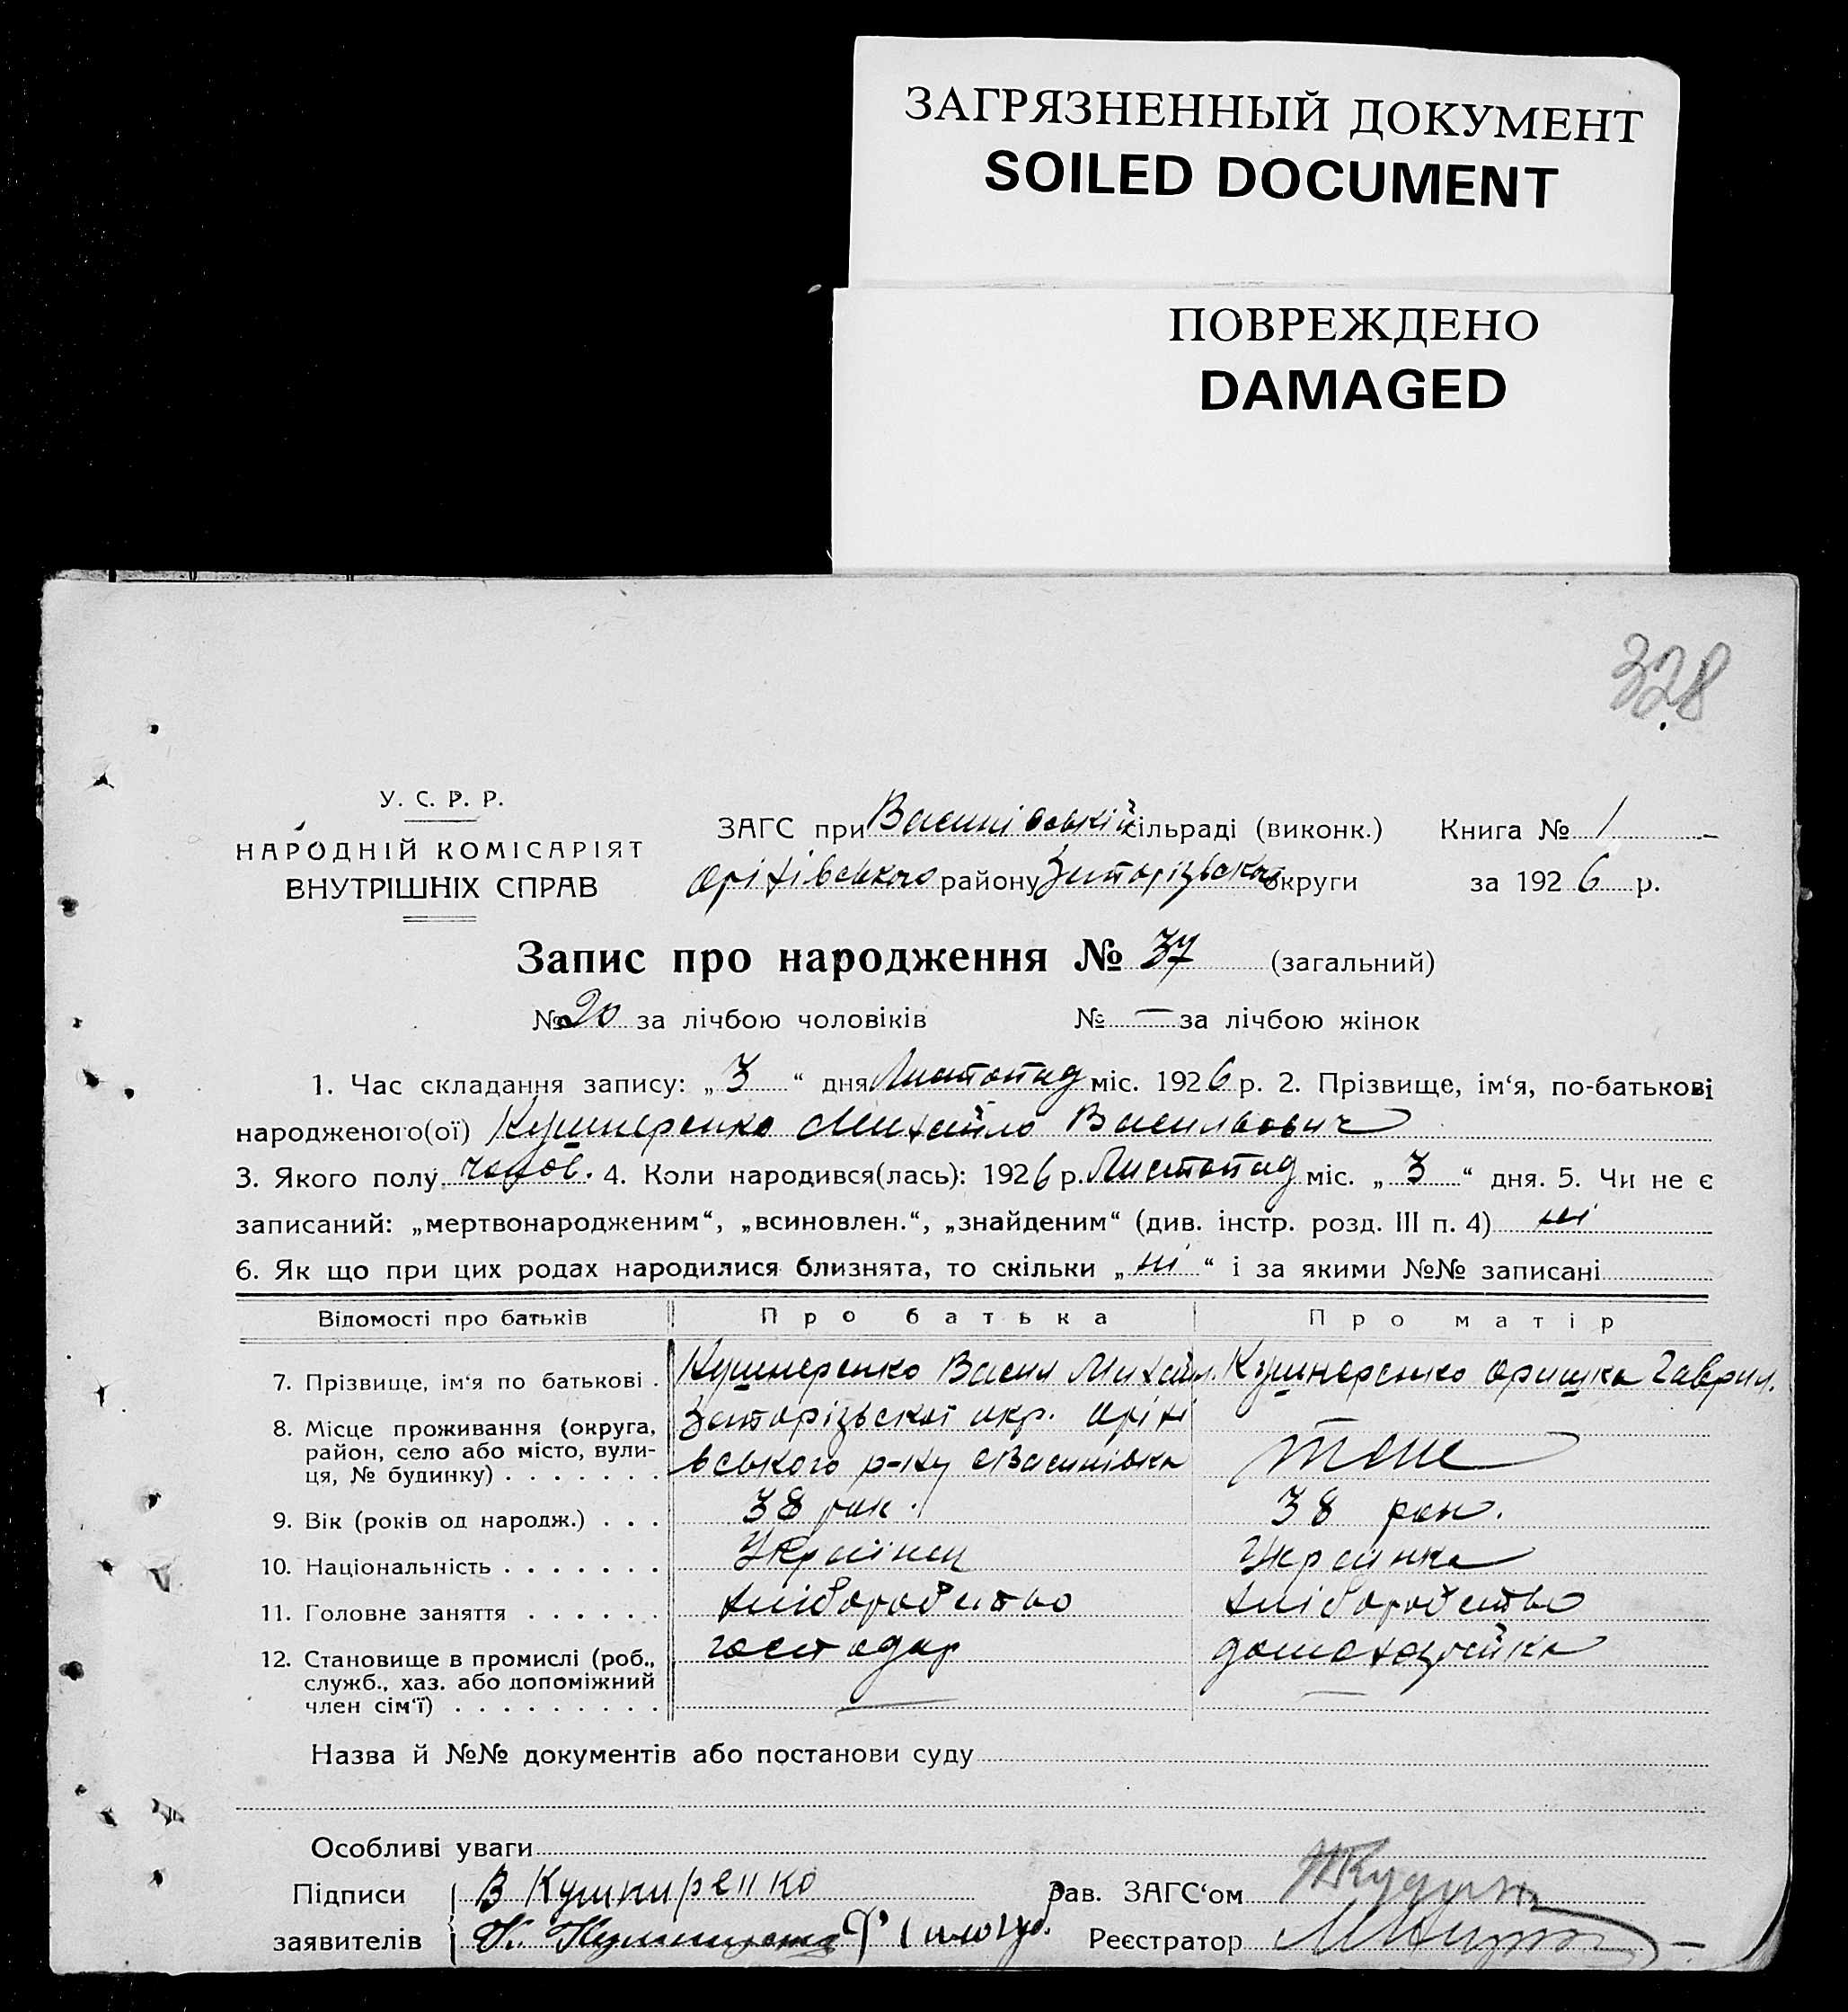 ЗАГРЯЗНЕННЫЙ ДОКУМЕНТ
SOILED DOCUMENT
ПОВРЕЖДЕНО
DAMAGED
328
У. С. Р. Р.
НАРОДНІЙ КОМІСАРІЯТ
ВНУТРІШНІХ СПРАВ
ЗАГС при Васинівській сільраді (виконк.) Книга № 1
Оріхівського району Запорізької округи за 1926 р.
Запис про народження № 37 (загальний)
№ 20 за лічбою чоловіків № — за лічбою жінок
1. Час складання запису: „3“ дня Листопад міс. 1926 р. 2. Прізвище, ім‘я, по-батькові
народженого(ої) Кушнеренко Михайло Васильович
3. Якого полу чолов. 4. Коли народився(лась): 1926 р. Листопад міс. „3“ дня. 5. Чи не є
записаний: „мертвонародженим“, „всиновлен.“, „знайденим“ (див. інстр. розд. III п. 4) ні
6. Як що при цих родах народилися близнята, то скільки „ні“ і за якими №№ записані
Відомості про батьків Про батька Про матір
7. Прізвище, ім‘я по батькові . Кушнеренко Васил Михайл. Кушнеренко Оришка Гаврил.
8. Місце проживання (округа, район, село або місто, вулиця, № будинку) . . . . . . . Запорізької окр. Оріхівського р-ну с Васинівка тоже
9. Вік (років од народж.) . . . 38 рок. 38 рок.
10. Національність . . . . . . . Українец Українка
11. Головне заняття . . . . . . хліборобство хліборобство
12. Становище в промислі (роб., служб., хаз. або допоміжний член сім‘ї) . . . . . . . . . господар домохазяйка
Назва й №№ документів або постанови суду
Особливі уваги
Підписи В Кушниренко Зав. ЗАГС‘ом
заявителів Реєстратор